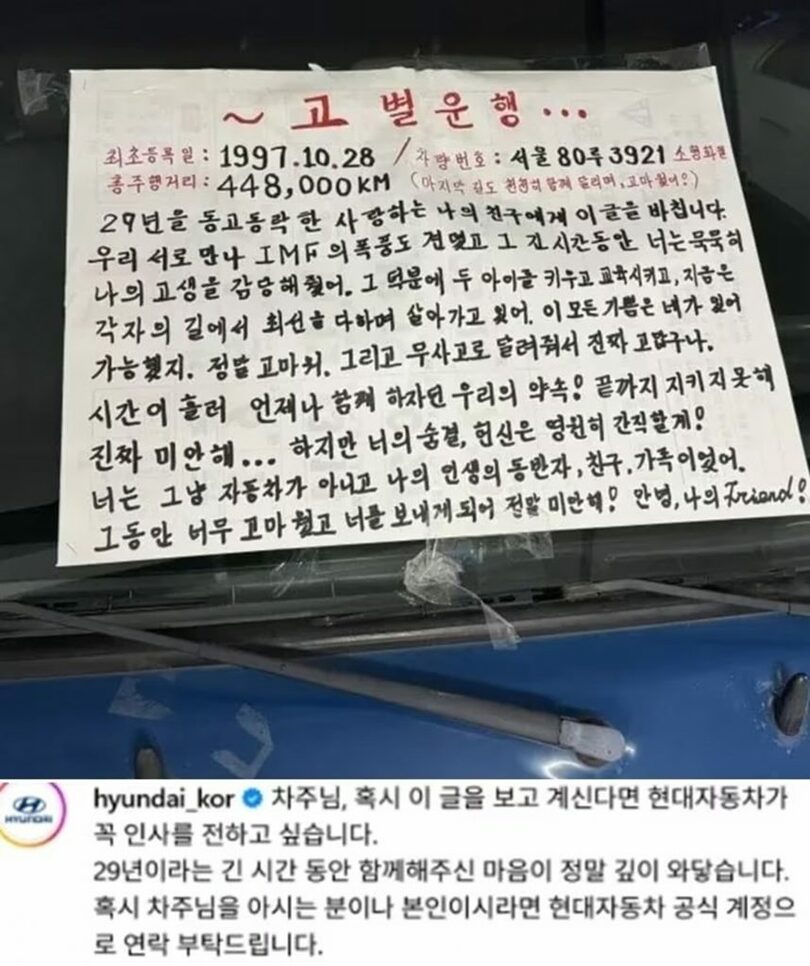 ~ 고 별 운 행 ...
최초등록일 : 1997.10.28 / 차량번호 : 서울 80루 3921 소형화물
총주행거리 : 448,000KM (마지막 길도 천천히 함께 달리며, 고마웠어?)
29년을 동고동락 한 사랑하는 나의 친구에게 이글을 바칩니다.
우리 서로 만나 IMF의 폭풍도 견뎠고 그 긴시간동안 너는 묵묵히
나의 고생을 감당해줬어. 그 덕분에 두 아이를 키우고 교육시키고, 지금은
각자의 길에서 최선을 다하며 살아가고 있어. 이 모든 기쁨은 네가 있어
가능했지. 정말 고마워. 그리고 무사고로 달려줘서 진짜 고맙구나.
시간이 흘러 언제나 함께 하자던 우리의 약속! 끝까지 지키지못해
진짜 미안해... 하지만 너의 숨결, 헌신은 영원히 간직할게!
너는 그냥 자동차가 아니고 나의 인생의 동반자, 친구, 가족이었어.
그동안 너무 고마웠고 너를 보내게되어 정말 미안해! 안녕, 나의 Friend!
HYUNDAI
hyundai_kor 차주님, 혹시 이 글을 보고 계신다면 현대자동차가
꼭 인사를 전하고 싶습니다.
29년이라는 긴 시간 동안 함께해주신 마음이 정말 깊이 와닿습니다.
혹시 차주님을 아시는 분이나 본인이시라면 현대자동차 공식 계정으
로 연락 부탁드립니다.